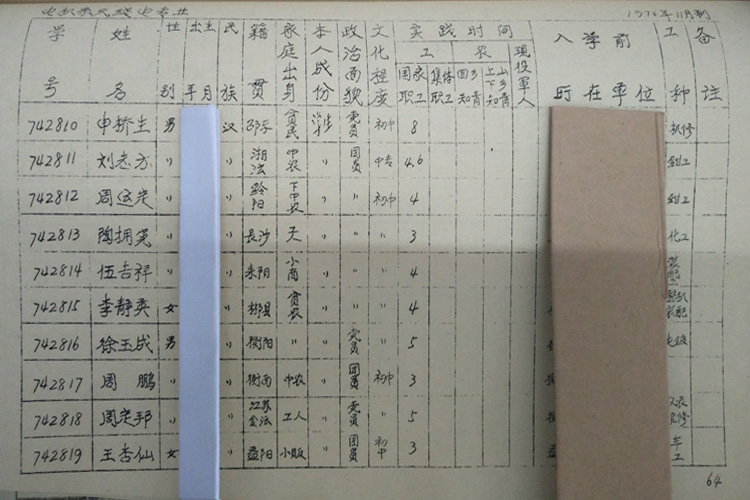 电机系无线电专业 1974年11月制
学号 姓名 性别 出生年月 民族 籍贯 家庭出身 本人成份 政治面貌 文化程度 实践时间 入学前所在单位 工种 备注
工 农 现役军人
国家职工 集体职工 回乡知青 上山下乡知青
742810 申桥生 男 汉 邵东 贫民 党员 初中 8 机修
742811 刘志方 〃 〃 中农 〃 团员 中专 4.6 钳工
742812 周运定 〃 〃 黔阳 下中农 〃 〃 初中 4 钳工
742813 陶拥笑 〃 〃 长沙 工 〃 〃 〃 3 化工
742814 伍吉祥 〃 〃 耒阳 小商 〃 〃 〃 4
742815 李静奕 女 〃 郴县 贫农 〃 〃 〃 4 装配
742816 徐玉成 男 〃 衡阳 〃 〃 党员 5
742817 周鹏 〃 〃 衡南 中农 〃 团员 初中 3
742818 周定邦 〃 〃 江苏 工人 〃 党员 5
742819 王杏仙 女 〃 益阳 小贩 〃 团员 初中 3 车工
64